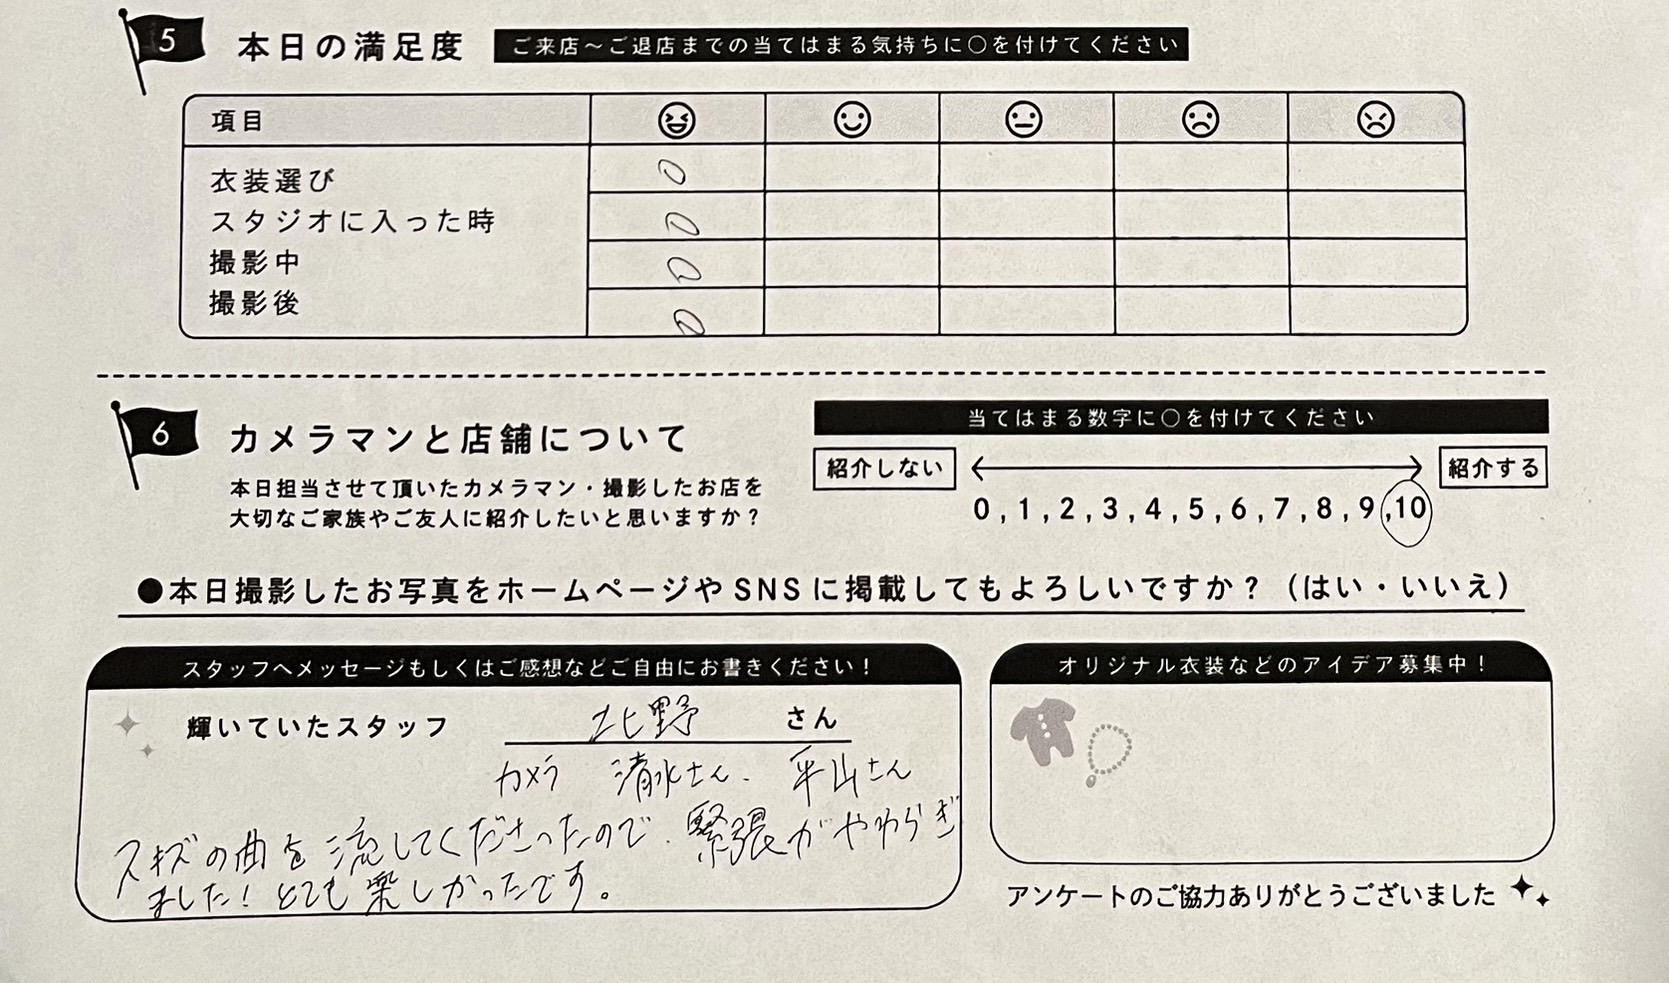 5 本日の満足度 ご来店～ご退店までの当てはまる気持ちに○を付けてください
項目
衣装選び
スタジオに入った時
撮影中
撮影後
6 カメラマンと店舗について
本日担当させて頂いたカメラマン・撮影したお店を
大切なご家族やご友人に紹介したいと思いますか？
当てはまる数字に○を付けてください
紹介しない 紹介する
0,1,2,3,4,5,6,7,8,9,10
●本日撮影したお写真をホームページやSNSに掲載してもよろしいですか？（はい・いいえ）
スタッフへメッセージもしくはご感想などご自由にお書きください！
輝いていたスタッフ 北野 さん
カメラ 清水さん、平山さん
スキズの曲を流してくださったので、緊張がやわらぎ
ました！とても楽しかったです。
オリジナル衣装などのアイデア募集中！
アンケートのご協力ありがとうございました